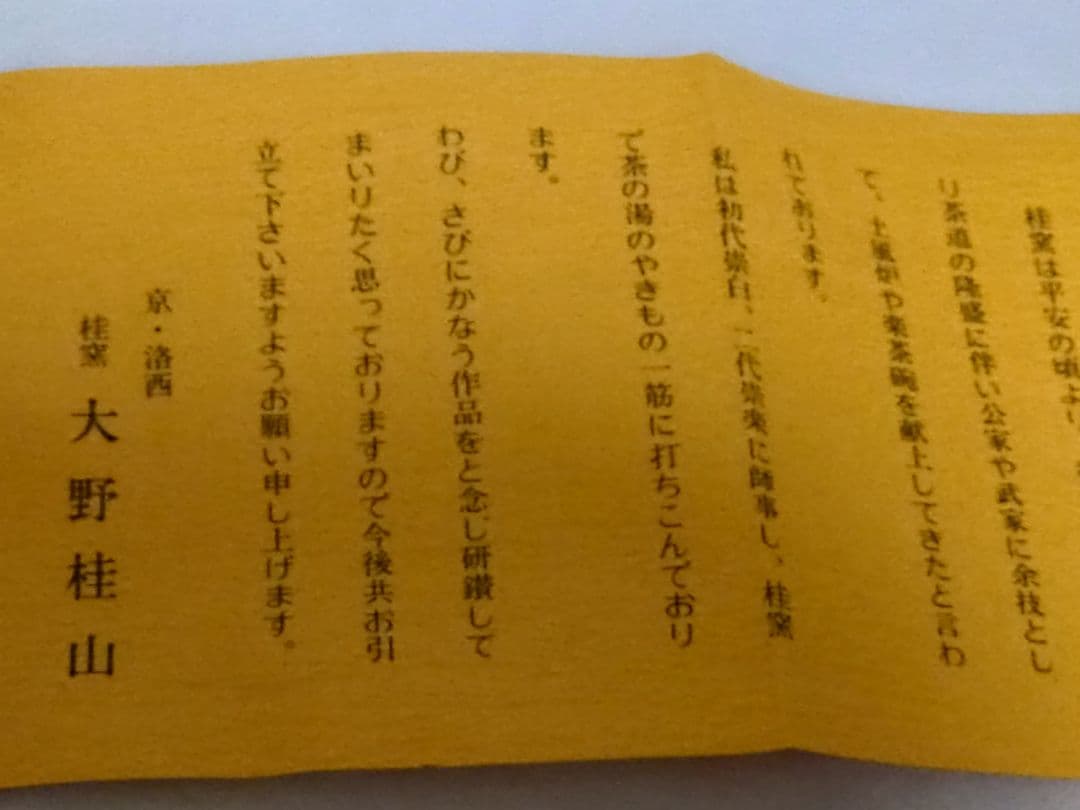 桂窯は平安の頃より
り茶道の隆盛に伴い公家や武家に余技とし
て、土風炉や楽茶碗を献上してきたと言わ
れております。
私は初代崇白、二代崇楽に師事し、桂窯
で茶の湯のやきもの一筋に打ちこんでおり
ます。
わび、さびにかなう作品をと念じ研鑽して
まいりたく思っておりますので今後共お引
立て下さいますようお願い申し上げます。
京・洛西
桂窯 大野桂山